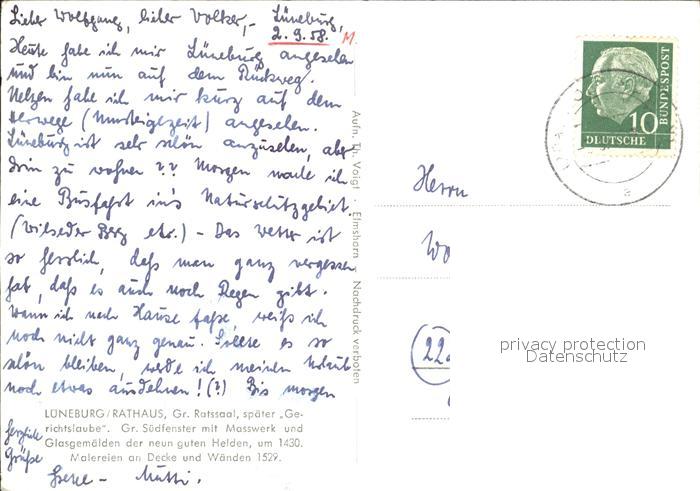 Lieber Wolfgang, lieber Volker, - Lüneburg,
2.9.58. M.
Heute habe ich mir Lüneburg angesehen
und bin nun auf dem Rückweg.
Uelzen habe ich mir kurz auf dem
Herwege (Umsteigezeit) angesehen.
Lüneburg ist sehr schön anzusehen, aber
drin zu wohnen ?? Morgen mache ich
eine Busfahrt in's Naturschutzgebiet.
(Wilseder Berg etc.) - Das Wetter ist
so herrlich, daß man ganz vergessen
hat, daß es auch noch Regen gibt.
Wann ich nach Hause fahre, weiß ich
noch nicht ganz genau. Sollte es so
schön bleiben, werde ich meinen Urlaub
noch etwas ausdehnen! (?) Bis morgen
LÜNEBURG/RATHAUS, Gr. Ratssaal, später „Ge-
richtslaube". Gr. Südfenster mit Masswerk und
Glasgemälden der neun guten Helden, um 1430.
Malereien an Decke und Wänden 1529.
herzliche
Grüße
Mutti.
Aufn. Th. Voigt · Elmshorn · Nachdruck verboten
10
DEUTSCHE
BUNDESPOST
Herrn
Wo
(22a
privacy protection
Datenschutz